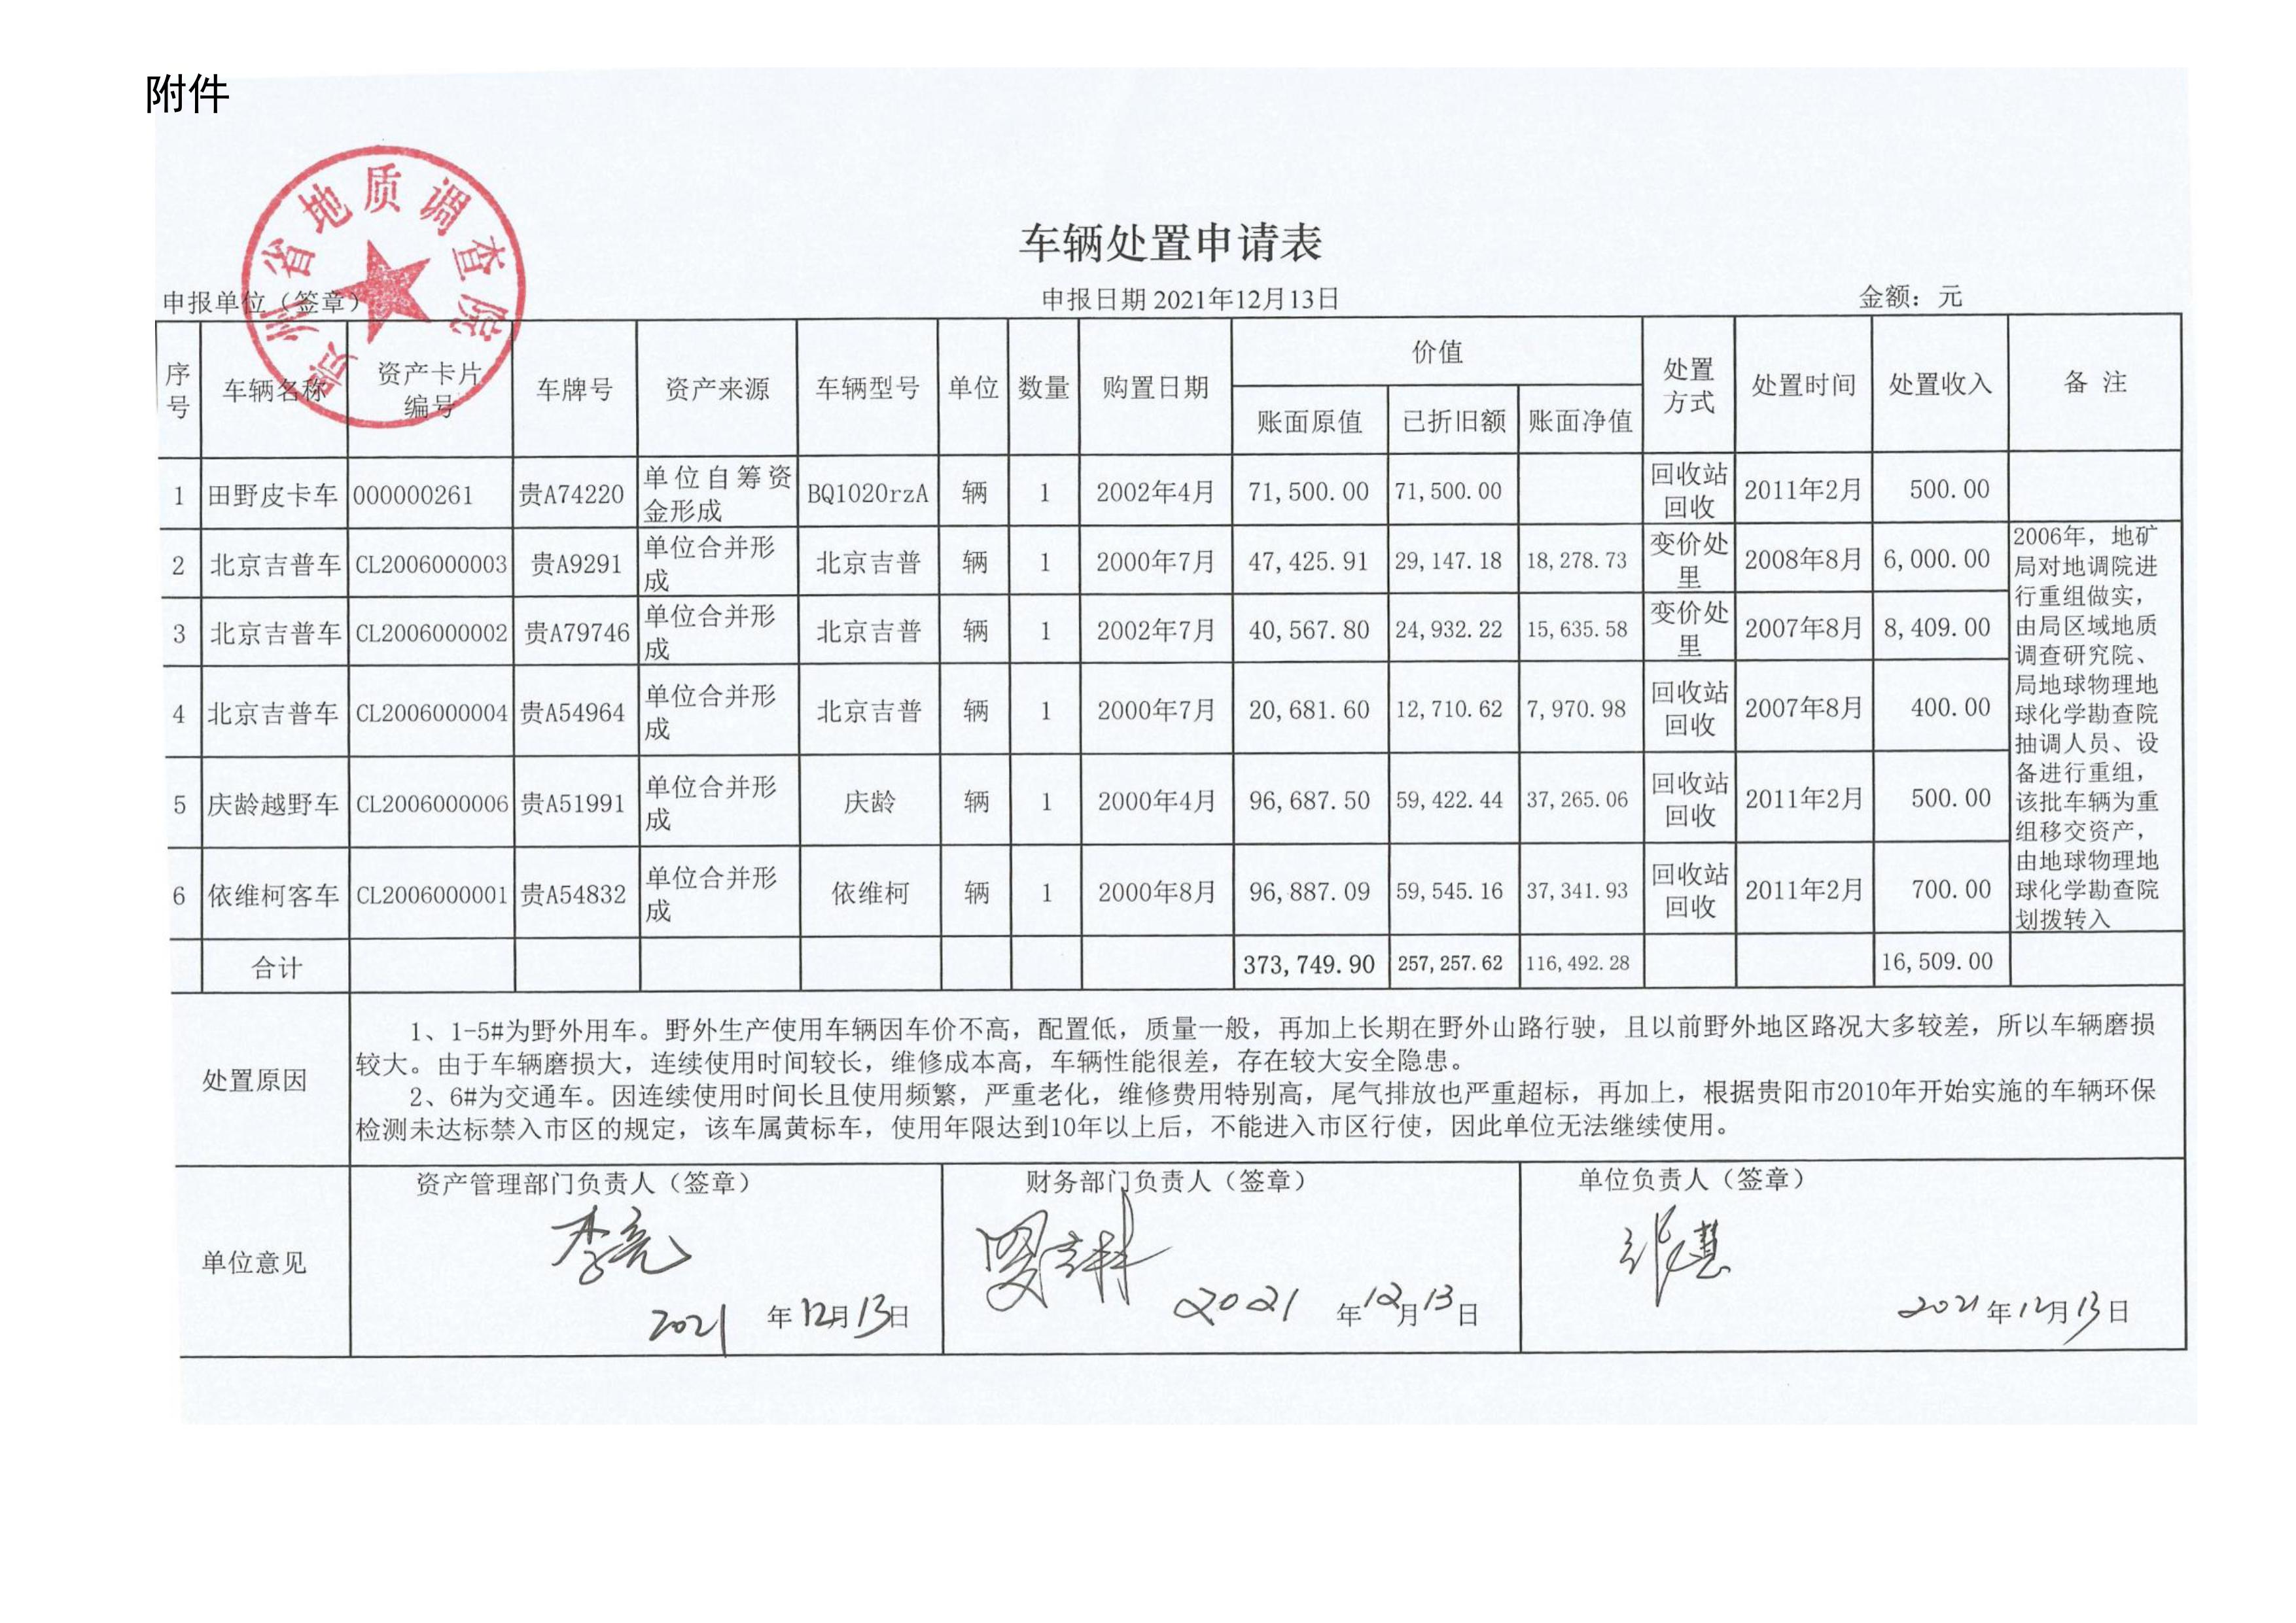 附件
贵州省地质调查院
车辆处置申请表
申报单位（签章） 申报日期 2021年12月13日 金额：元
序号 车辆名称 资产卡片编号 车牌号 资产来源 车辆型号 单位 数量 购置日期 价值 账面原值 已折旧额 账面净值 处置方式 处置时间 处置收入 备 注
1 田野皮卡车 000000261 贵A74220 单位自筹资金形成 BQ1020rzA 辆 1 2002年4月 71,500.00 71,500.00 回收站回收 2011年2月 500.00
2 北京吉普车 CL2006000003 贵A9291 单位合并形成 北京吉普 辆 1 2000年7月 47,425.91 29,147.18 18,278.73 变价处里 2008年8月 6,000.00
3 北京吉普车 CL2006000002 贵A79746 单位合并形成 北京吉普 辆 1 2002年7月 40,567.80 24,932.22 15,635.58 变价处里 2007年8月 8,409.00
4 北京吉普车 CL2006000004 贵A54964 单位合并形成 北京吉普 辆 1 2000年7月 20,681.60 12,710.62 7,970.98 回收站回收 2007年8月 400.00
5 庆龄越野车 CL2006000006 贵A51991 单位合并形成 庆龄 辆 1 2000年4月 96,687.50 59,422.44 37,265.06 回收站回收 2011年2月 500.00
6 依维柯客车 CL2006000001 贵A54832 单位合并形成 依维柯 辆 1 2000年8月 96,887.09 59,545.16 37,341.93 回收站回收 2011年2月 700.00
2006年，地矿
局对地调院进
行重组做实，
由局区域地质
调查研究院、
局地球物理地
球化学勘查院
抽调人员、设
备进行重组，
该批车辆为重
组移交资产，
由地球物理地
球化学勘查院
划拨转入
合计 373,749.90 257,257.62 116,492.28 16,509.00
处置原因
1、1-5#为野外用车。野外生产使用车辆因车价不高，配置低，质量一般，再加上长期在野外山路行驶，且以前野外地区路况大多较差，所以车辆磨损
较大。由于车辆磨损大，连续使用时间较长，维修成本高，车辆性能很差，存在较大安全隐患。
2、6#为交通车。因连续使用时间长且使用频繁，严重老化，维修费用特别高，尾气排放也严重超标，再加上，根据贵阳市2010年开始实施的车辆环保
检测未达标禁入市区的规定，该车属黄标车，使用年限达到10年以上后，不能进入市区行使，因此单位无法继续使用。
单位意见
资产管理部门负责人（签章） 财务部门负责人（签章） 单位负责人（签章）
李亮
2021 年12月13日 2021 年12月13日 2021年12月13日